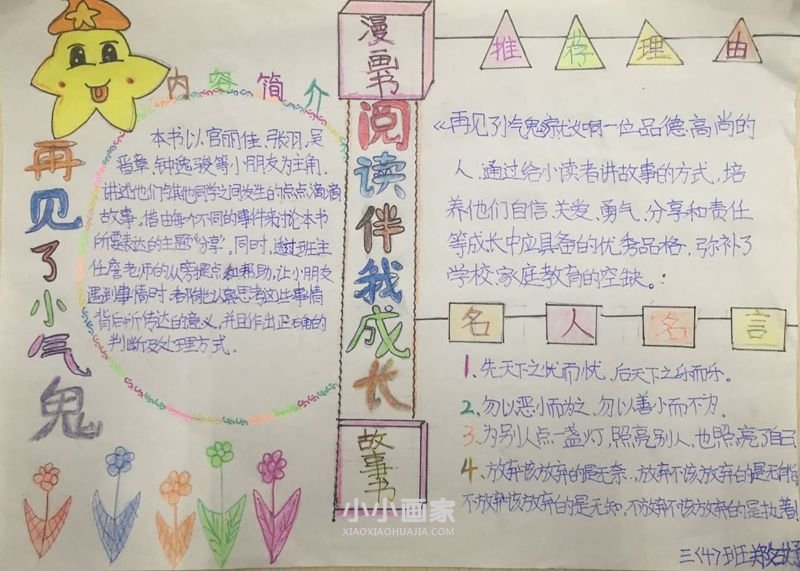 再见了小气鬼
内容简介
本书以官丽佳、张羽、吴
晋章、钟逸骏等小朋友为主角,
讲述他们与其他同学之间发生的点点滴滴
故事。借由每个不同的事件来讨论本书
所要表达的主题“分享”。同时,透过班主
任詹老师的从旁提点和帮助,让小朋友
遇到事情时,都能认真思考这些事情
背后所传达的意义。并且作出正确的
判断及处理方式。
漫画书
阅读伴我成长
故事书
推荐理由
《再见了小气鬼
一位品德高尚的
人,通过给小读者讲故事的方式,培
养他们自信、关爱、勇气、分享和责任
等成长中应具备的优秀品格,弥补了
学校、家庭教育的空缺。
名人名言
1、先天下之忧而忧,后天下之乐而乐。
2、勿以恶小而为之,勿以善小而不为.
3、为别人点一盏灯,照亮别人,也照亮了自己
4、放弃该放弃的是无奈,放弃不该放弃的是无能
不放弃该放弃的是无知,不放弃不该放弃的是执着
三〈4〉班
小小画家
XIAOXIAOHUAJIA.COM